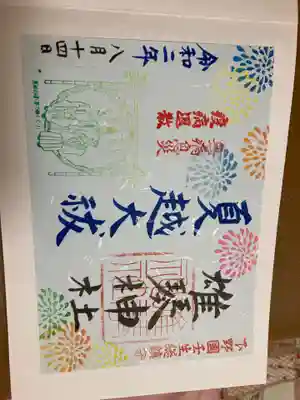 下野國壬生總鎮守
雄琴神社
夏越大祓
無病息災
疫病退散
令和二年
八月十四日